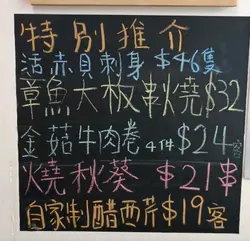 特別推介
活赤貝刺身 $46隻
章魚大椒串燒 $32
金菇牛肉卷 4件 $24
燒秋葵 $21串
自家制醋西芹 $19客